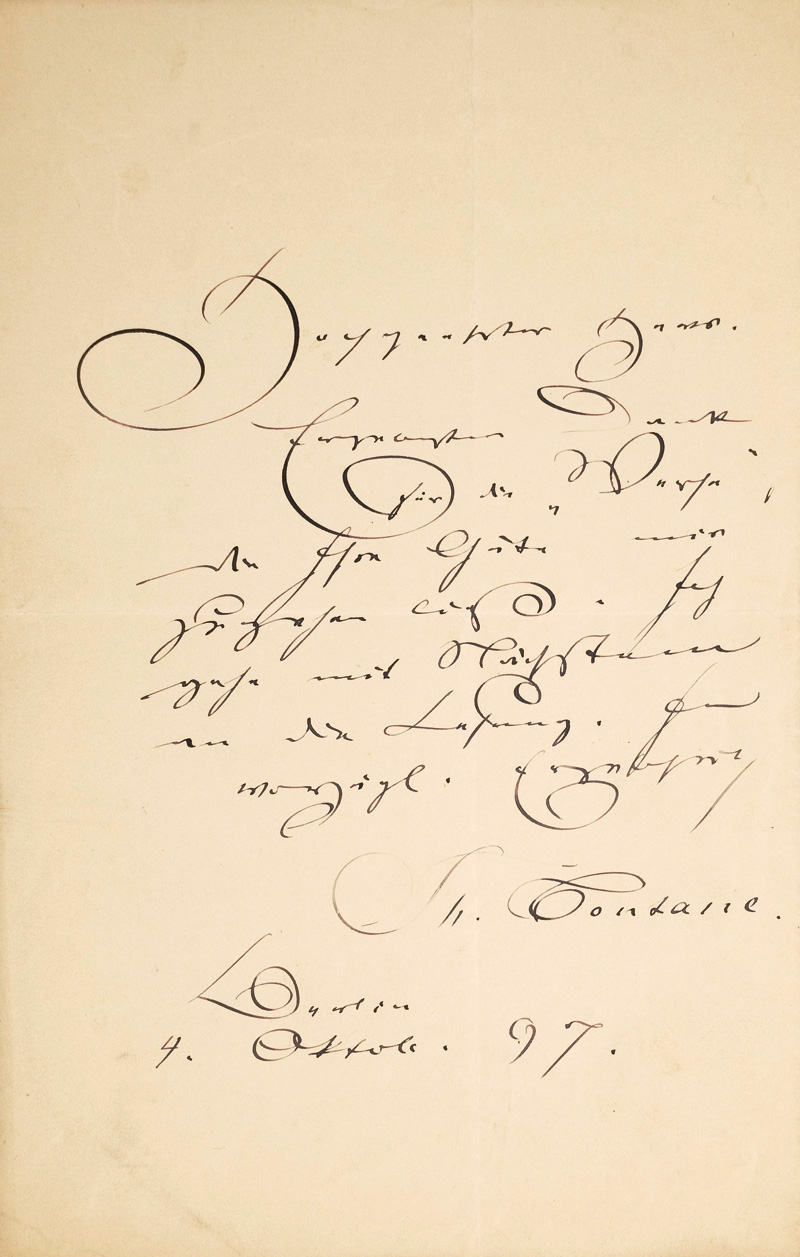 Hochgeehrter Herr.
Ergebensten Dank
für die „Verse“,
die Ihre Güte mir
zugehen ließ. Ich
gehe mit Nächstem
an die Lesung. In
vorzügl. Ergebenheit
Th. Fontane.
Berlin
4. Oktob. 97.